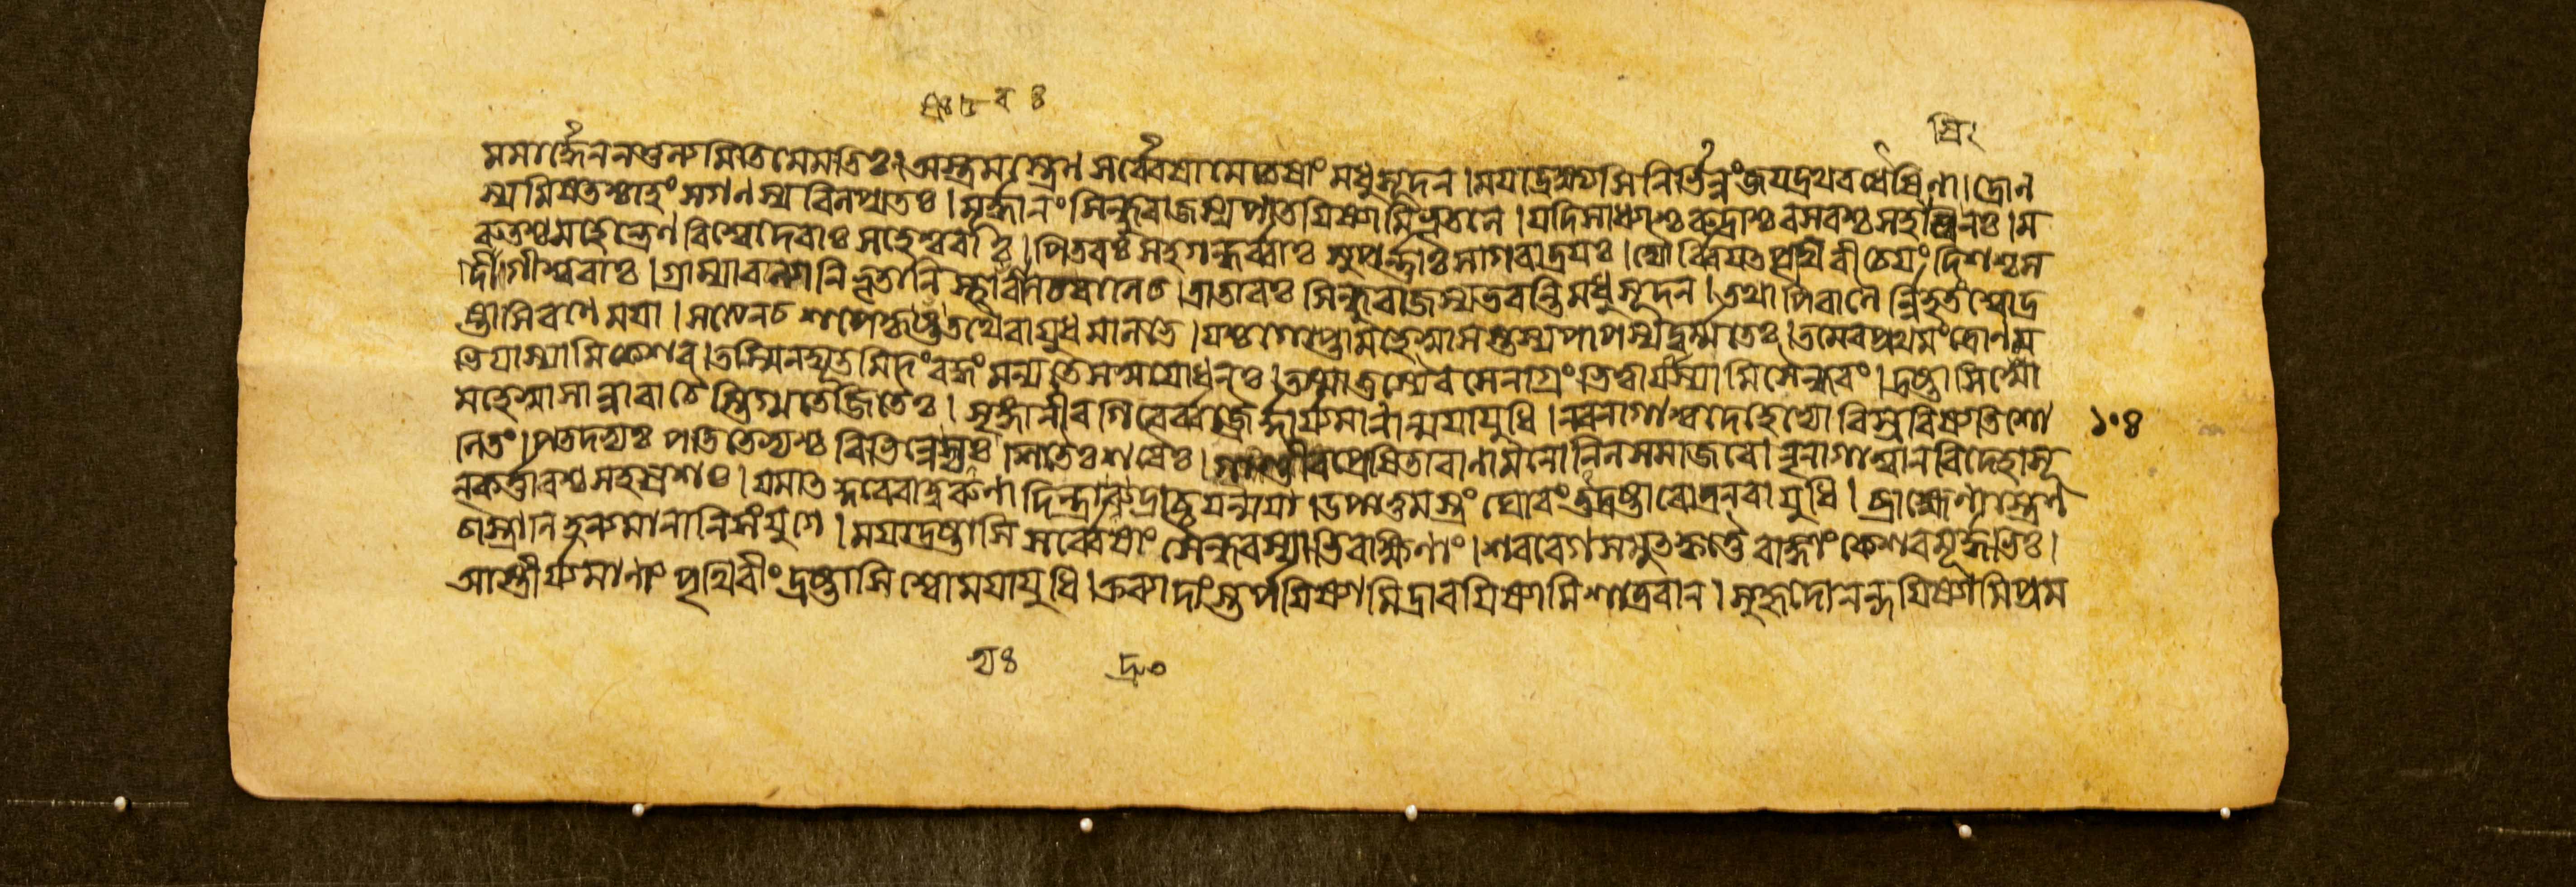 মমার্দ্ধেননতুল্যমিতিমেমতিঃ।অস্ত্রমস্ত্রেণ সর্ব্বেষামেতেষাং মধুসূদন।ময়াদ্রক্ষ্যসি নির্ভিন্নং জয়দ্রথবধৈষিণা।দ্রোণ
স্যমিষতশ্চাহং সগণস্য বিলপ্যতঃ।মূর্দ্ধানং সিন্ধুরাজস্য পাতয়িষ্যামিভূতলে।যদিসাধ্যাশ্চ রুদ্রাশ্চ বসবশ্চ সহাশ্বিনঃ।ম
রুতশ্চ সহেন্দ্রেণ বিশ্বেদেবাঃ সহেশ্বরাঃ।পিতরঃ সহগন্ধর্ব্বাঃ সুপর্ণ্ণাঃ সাগরাদ্রয়ঃ।দ্যৌর্ব্বিয়ৎপৃথিবী চেয়ং দিশশ্চস
দিগীশ্বরাঃ।গ্রাম্যারণ্যানি ভূতানি স্থাবরাণিচরাণিচ।ত্রাতারঃ সিন্ধুরাজস্যভবন্তি মধুসূদন।তথাপিবাণৈর্ন্নিহতং শ্বোদ্র
ষ্টাসিরণে ময়া।সত্যেনচ শপেকৃষ্ণতথৈবায়ুধমালভে।যশ্চগোপ্তামহেষ্বাসস্তস্যপাপস্যদুর্ম্মতেঃ।তমেবপ্রথমং দ্রোণম
ভিযাস্যামিকেশব।তস্মিনদ্যূতমিদং বদ্ধং মন্যতেস্মসুযোধনঃ।তস্মাত্তস্যৈবসেনাগ্রং ভিত্ত্বাযাস্যামিসৈন্ধবং।দ্রষ্টাসিশ্বো
মহেষ্বাসান্নারাচৈস্তিগ্মতেজিতৈঃ।শৃঙ্গানীবগিরের্ব্বজ্রৈর্দ্দার্য্যমাণান্ময়াযুধি।নরনাগাশ্বদেহেভ্যো বিস্রবিষ্যতিশো
ণিতং।পতদভ্যঃ পতিতেভ্যশ্চ বিভিন্নেভ্যঃ শিতৈঃশরৈঃ।গাণ্ডীবপ্রেষিতাবাণামনোনিলসমাজবে।নৃনাগাশ্বানবিদেহাসূ
নকর্ত্তারশ্চ সহস্রশঃ।যমাত কুবেরাদ্বরুণা দিন্দ্রাদ্রুদ্রাচ্চযন্ময়া।উপাত্তমস্ত্রং ঘোরং তদ্দ্রষ্টারোত্রনরাযুধি।ব্রাহ্মেণাস্ত্রেণ
চাস্ত্রানিহন্যমানানিসংযুগে।ময়াদ্রষ্টাসি সর্ব্বেষাং সৈন্ধবস্যাভিরক্ষিণাং।শরবেগসমুতকৃত্তৈ রাজ্ঞাং কেশবমূর্দ্ধভিঃ।
আস্তীর্য্যমাণাং পৃথিবীং দ্রষ্টাসিশ্বোময়াযুধি।ক্রব্যাদাংস্তর্পয়িষ্যামিদ্রাবয়িষ্যামিশাত্রবান।সুহৃদোনন্দয়িষ্যামিপ্রম
১০৪